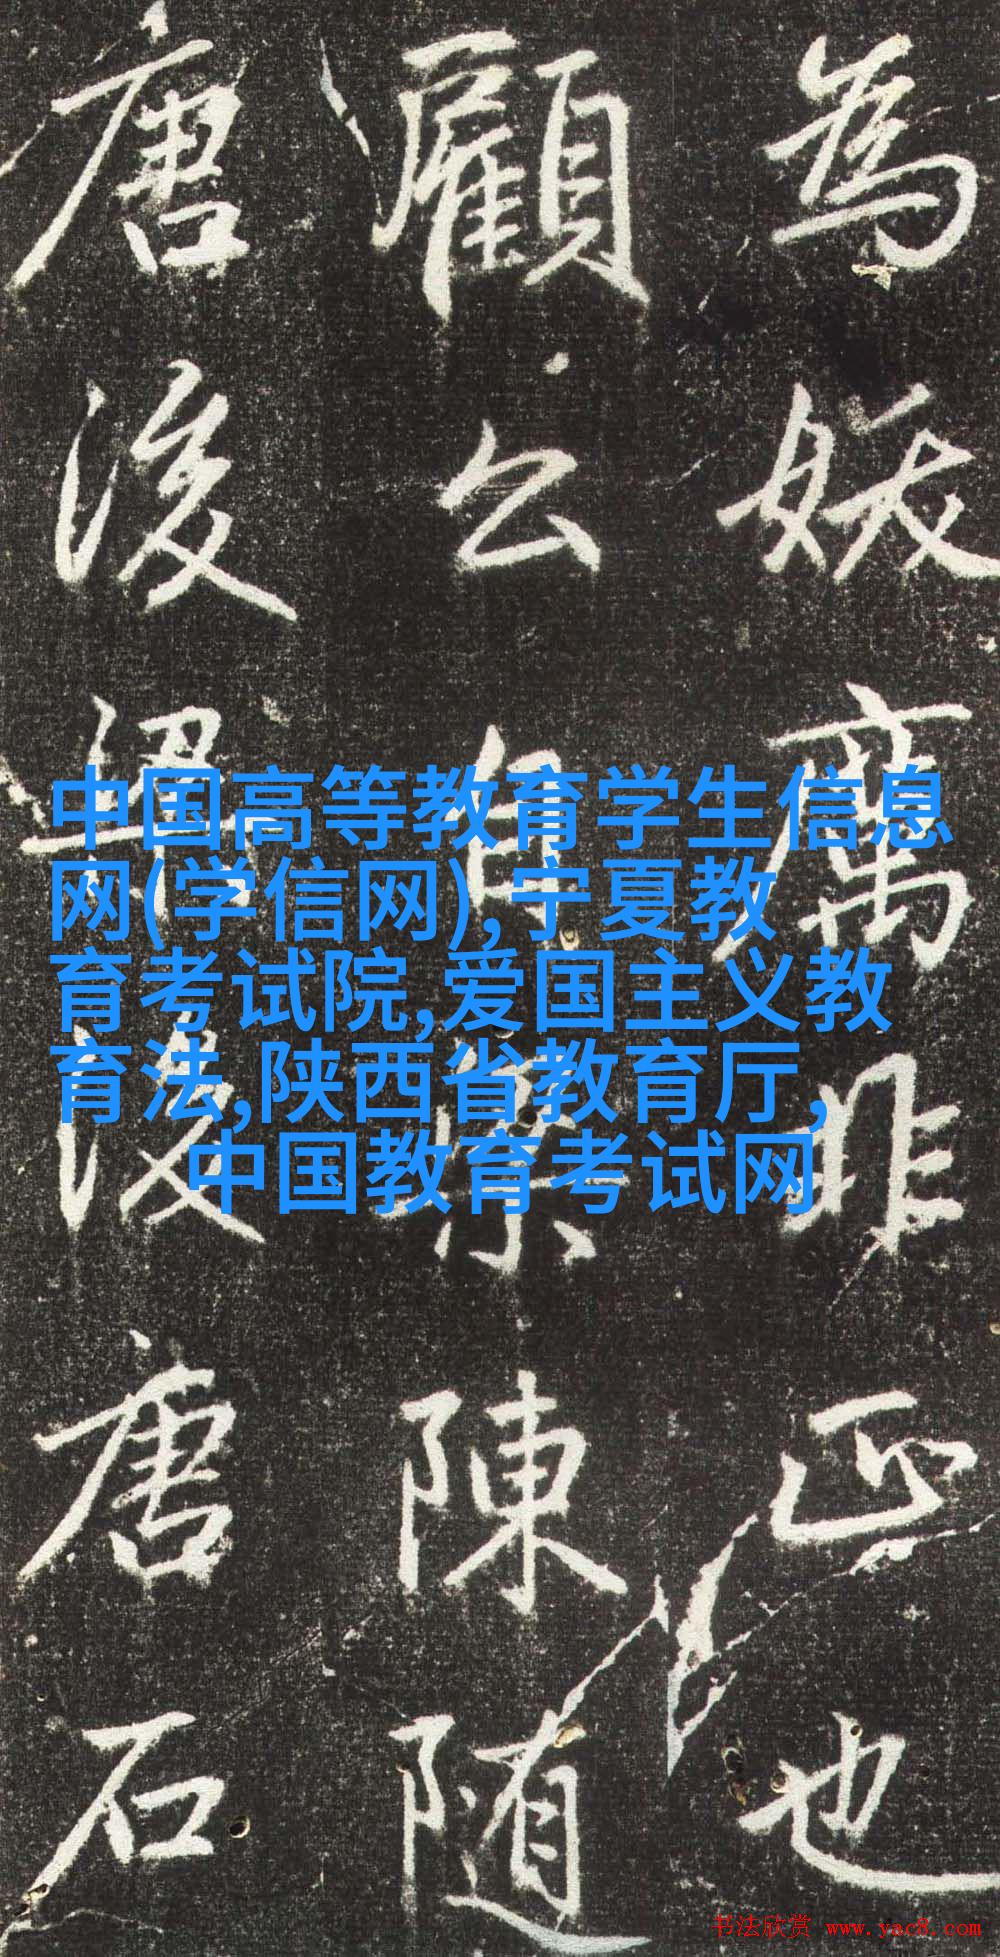 為妖厲非正也
顧公自陳隨
唐後後唐石
中国高等教育学生信息
网(学信网),宁夏教
育考试院,爱国主义教
育法,陕西省教育厅,
中国教育考试网
书法欣赏 www.yac8.com